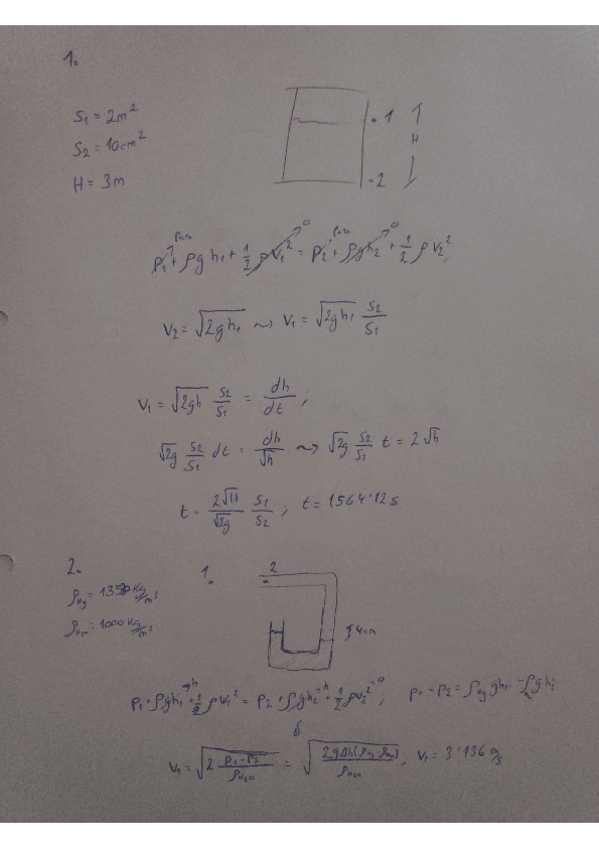 1.
S₁ = 2m²
S₂ = 10cm²
H = 3m
1
H
2
p₁ + ρgh₁ + 1/2 ρv₁² = p₂ + ρgh₂ + 1/2 ρv₂²,
v₂ = √2gh₁ ⇝ v₁ = √2gh₁ S₂/S₁
v₁ = √2gh S₂/S₁ = dh/dt ;
√2g S₂/S₁ dt = dh/√h ⇝ √2g S₂/S₁ t = 2√h
t = 2√H/√2g S₁/S₂ ; t = 1564'12s
2.
1.
2
ρHg =
kg/m³
ρ
= 1000 kg/m³
4cm
p₁ + ρgh₁ + 1/2 ρv₁² = p₂ + ρgh₂ + 1/2 ρv₂² ; p₁ - p₂ = ρHg gh₁ - ρgh₂
v₁ = √2 p₁-p₂/ρH₂O = √2gΔh(ρHg - ρ)/ρH₂O , v₁ = 3'136 m/s